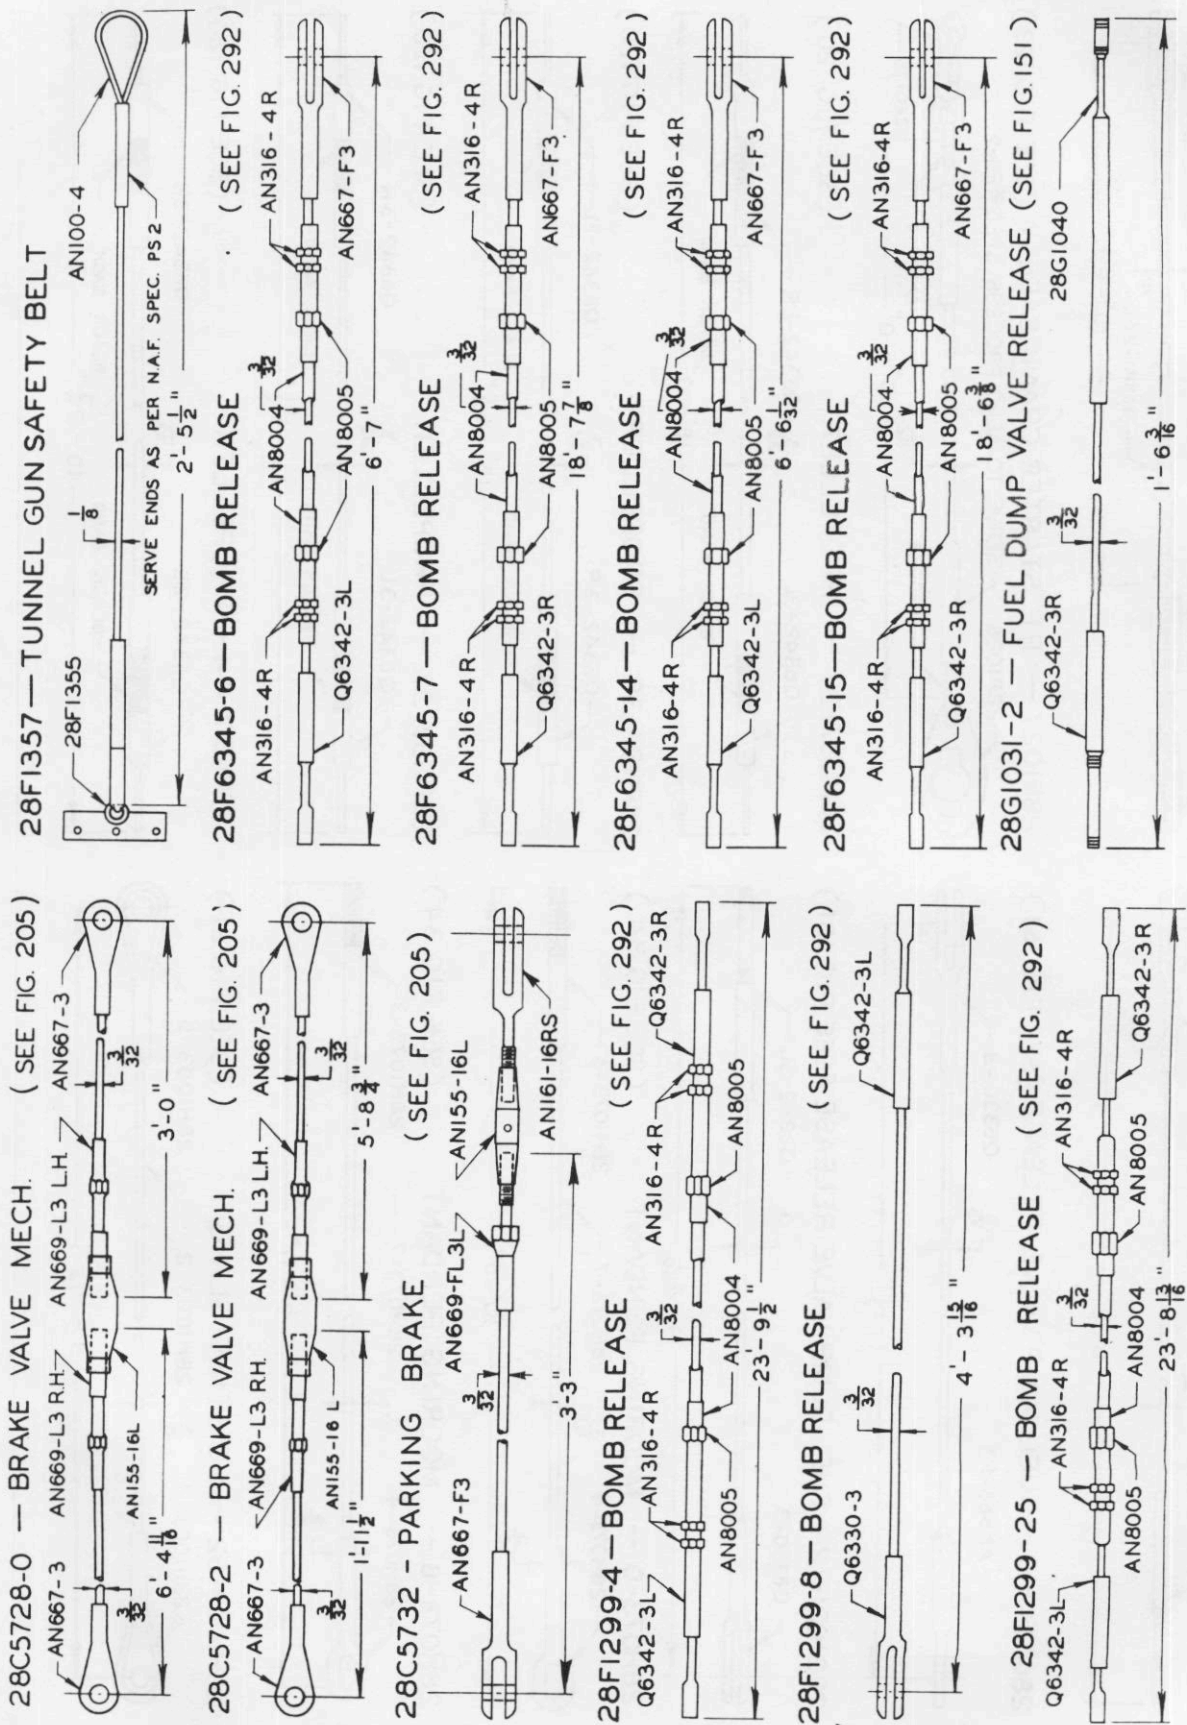 28C5728-0 — BRAKE VALVE MECH. (SEE FIG. 205)
AN667-3
AN669-L3 R.H.
AN669-L3 L.H.
AN667-3
3/32
3/32
AN155-16L
6'-4 11/16"
3'-0"
28C5728-2 — BRAKE VALVE MECH. (SEE FIG. 205)
AN667-3
AN669-L3 R.H.
AN669-L3 L.H.
AN667-3
3/32
3/32
AN155-16L
1'-11 1/2"
5'-8 3/4"
28C5732 - PARKING BRAKE (SEE FIG. 205)
AN667-F3
AN669-FL3L
AN155-16L
3/32
AN161-16RS
3'-3"
28F1299-4 — BOMB RELEASE (SEE FIG. 292)
Q6342-3L
AN316-4R
AN316-4R
Q6342-3R
3/32
AN8005
AN8004
AN8005
23'-9 1/2"
28F1299-8 — BOMB RELEASE (SEE FIG. 292)
Q6330-3
3/32
Q6342-3L
4'-3 15/16"
28F1299-25 — BOMB RELEASE (SEE FIG. 292)
Q6342-3L
AN316-4R
3/32
AN316-4R
AN8005
AN8004
AN8005
Q6342-3R
23'-8 13/16"
28F1357 — TUNNEL GUN SAFETY BELT
28F1355
1/8
AN100-4
SERVE ENDS AS PER N.A.F. SPEC. PS2
2'-5 1/2"
28F6345-6 — BOMB RELEASE (SEE FIG. 292)
AN316-4R
AN8004
3/32
AN316-4R
Q6342-3L
AN8005
AN667-F3
6'-7"
28F6345-7 — BOMB RELEASE (SEE FIG. 292)
AN316-4R
AN8004
3/32
AN316-4R
Q6342-3R
AN8005
AN667-F3
18'-7 7/8"
28F6345-14 — BOMB RELEASE (SEE FIG. 292)
AN316-4R
AN8004
3/32
AN316-4R
Q6342-3L
AN8005
AN667-F3
6'-6 9/32"
28F6345-15 — BOMB RELEASE (SEE FIG. 292)
AN316-4R
AN8004
3/32
AN316-4R
Q6342-3R
AN8005
AN667-F3
18'-6 3/8"
28G1031-2 — FUEL DUMP VALVE RELEASE (SEE FIG. 151)
Q6342-3R
3/32
28G1040
1'-6 3/16"